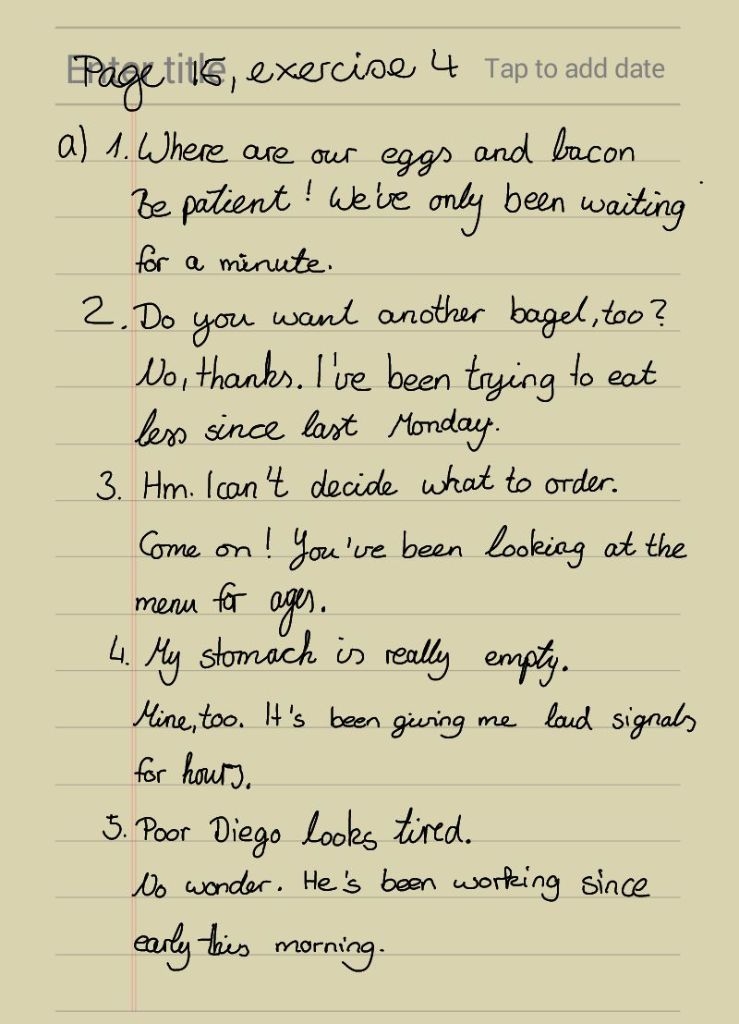 Enter title Tap to add date
Page 15, exercise 4
a) 1. Where are our eggs and bacon
Be patient! We've only been waiting
for a minute.
2. Do you want another bagel, too?
No, thanks. I've been trying to eat
less since last Monday.
3. Hm. I can't decide what to order.
Come on! You've been looking at the
menu for ages.
4. My stomach is really empty.
Mine, too. It's been giving me loud signals
for hours.
5. Poor Diego looks tired.
No wonder. He's been working since
early this morning.